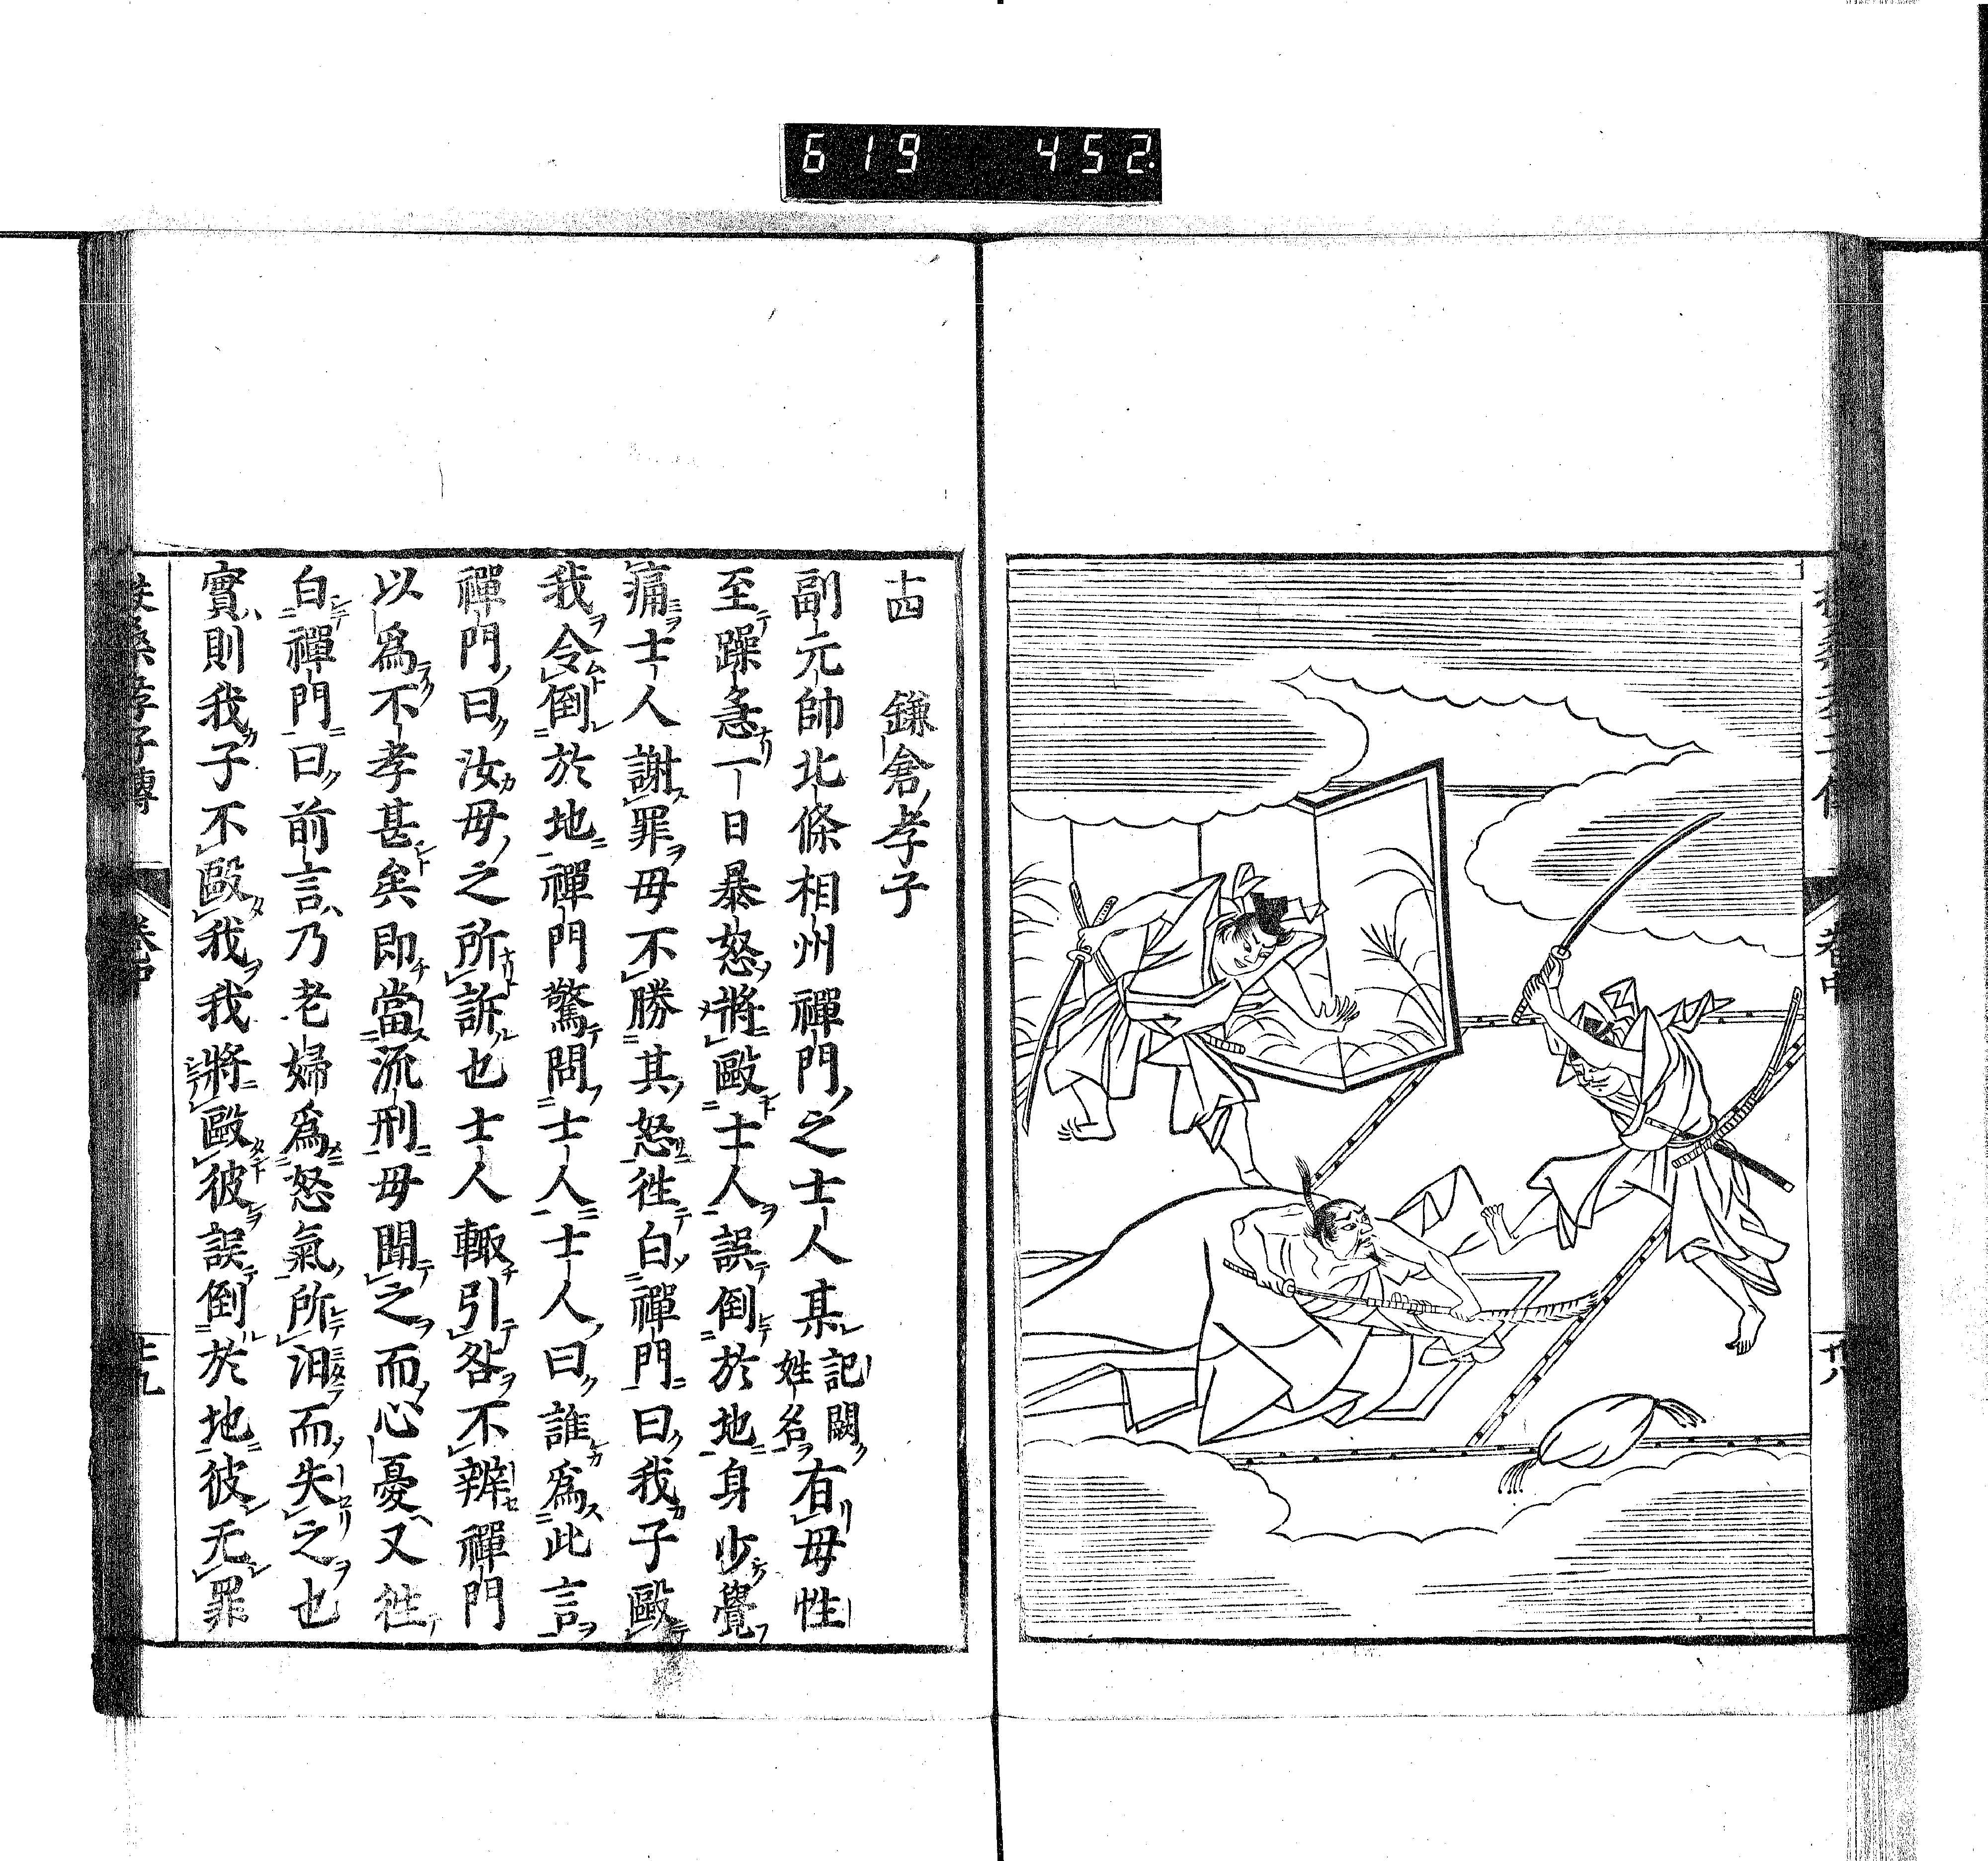 619 452.
卷中
廿八
十四 鎌倉孝子
副元帥北條相州禪門之士人某記闕姓名有母性
至躁急一日暴怒將毆士人誤倒於地身少覺
痛士人謝罪母不勝其怒徃白禪門曰我子毆
我令倒於地禪門驚問士人士人曰誰爲此言
禪門曰汝母之所訴也士人輙引咎不辨禪門
以爲不孝甚矣即當流刑母聞之而心憂又徃
白禪門曰前言乃老婦爲怒氣所汨而失之也
實則我子不毆我我將毆彼誤倒於地彼无罪
扶桑孝子傳
卷中
廿九